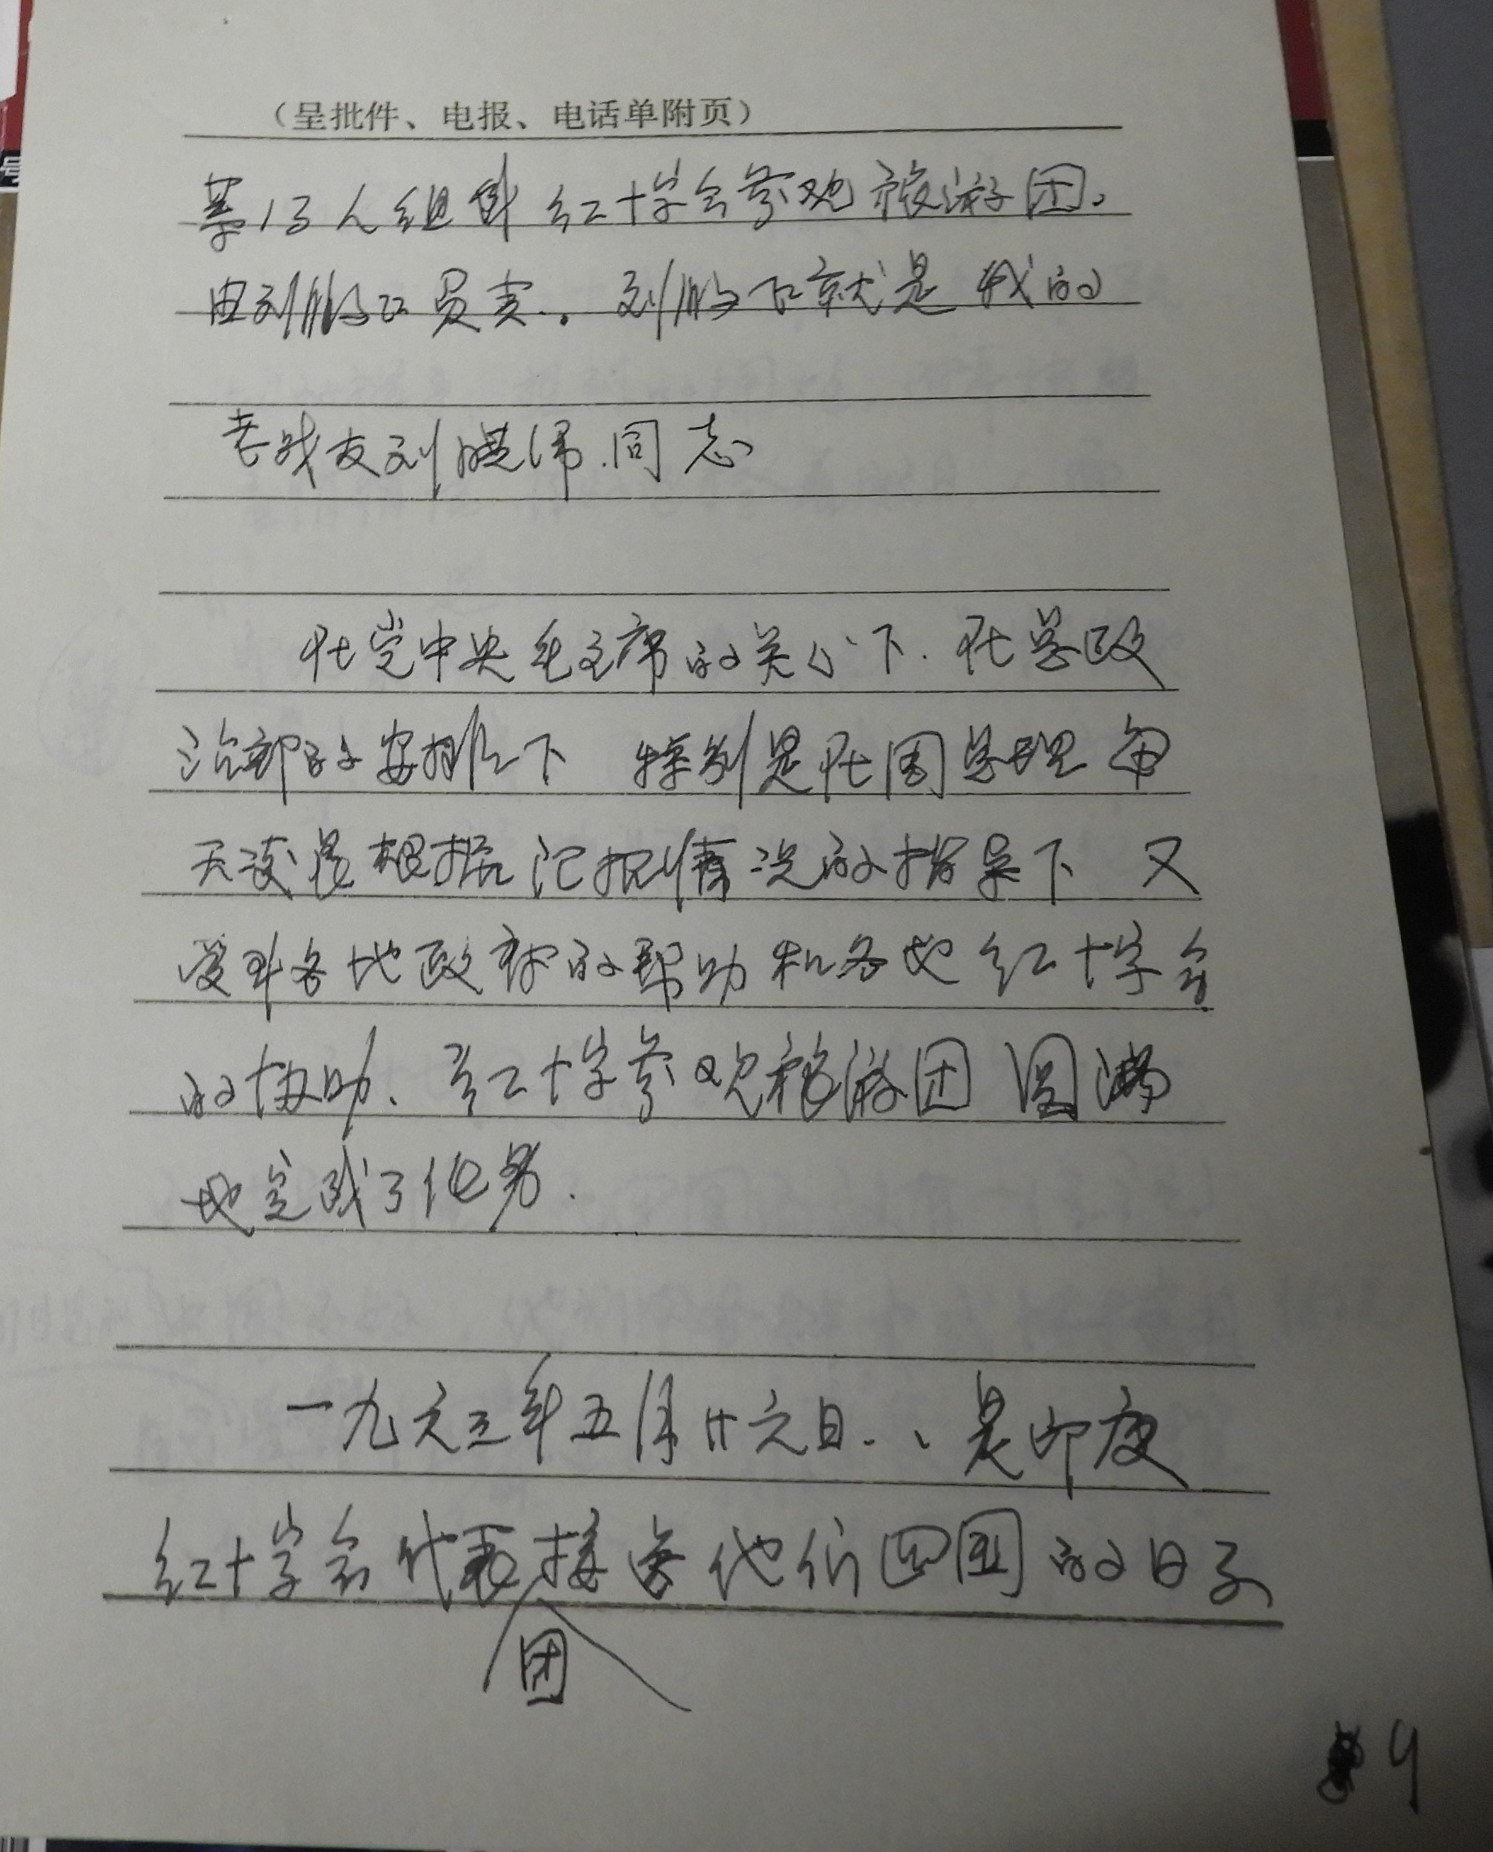 （呈批件、电报、电话单附页）
等13人组成红十字会参观旅游团。
由刘 负责。刘 就是我的
老战友刘 同志
在党中央毛主席的关心下.在总政
治部的安排下 特别是在周总理每
天凌晨根据汇报情况的指导下 又
受到各地政府的帮助和各地红十字会
的协助、红十字参观旅游团 圆满
地完成了任务.
一九六三年五月廿六日.、是印度
红十字会代表团接待他们回国的日子
9